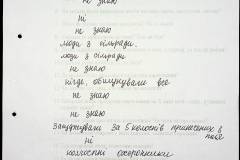 не знаю
ні
не знаю
люди з сільради.
люди з сільради
не знаю
нігде, обшукували все
не знаю
не знаю
зашухували за 5 колосків принесених з поля
ні
колгоспні охоронники